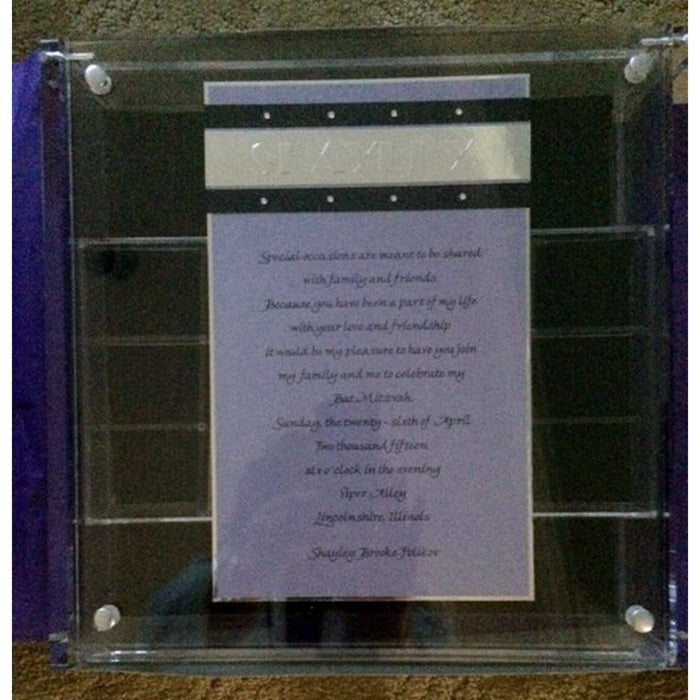 SHAYLEY
Special occasions are meant to be shared
with family and friends
Because you have been a part of my life
with your love and friendship
it would be my pleasure to have you join
my family and me to celebrate my
Bat Mitzvah
Sunday, the twenty - sixth of April
Two thousand fifteen
six o'clock in the evening
Viper Alley
Lincolnshire, Illinois
Shayley Brooke Polikov